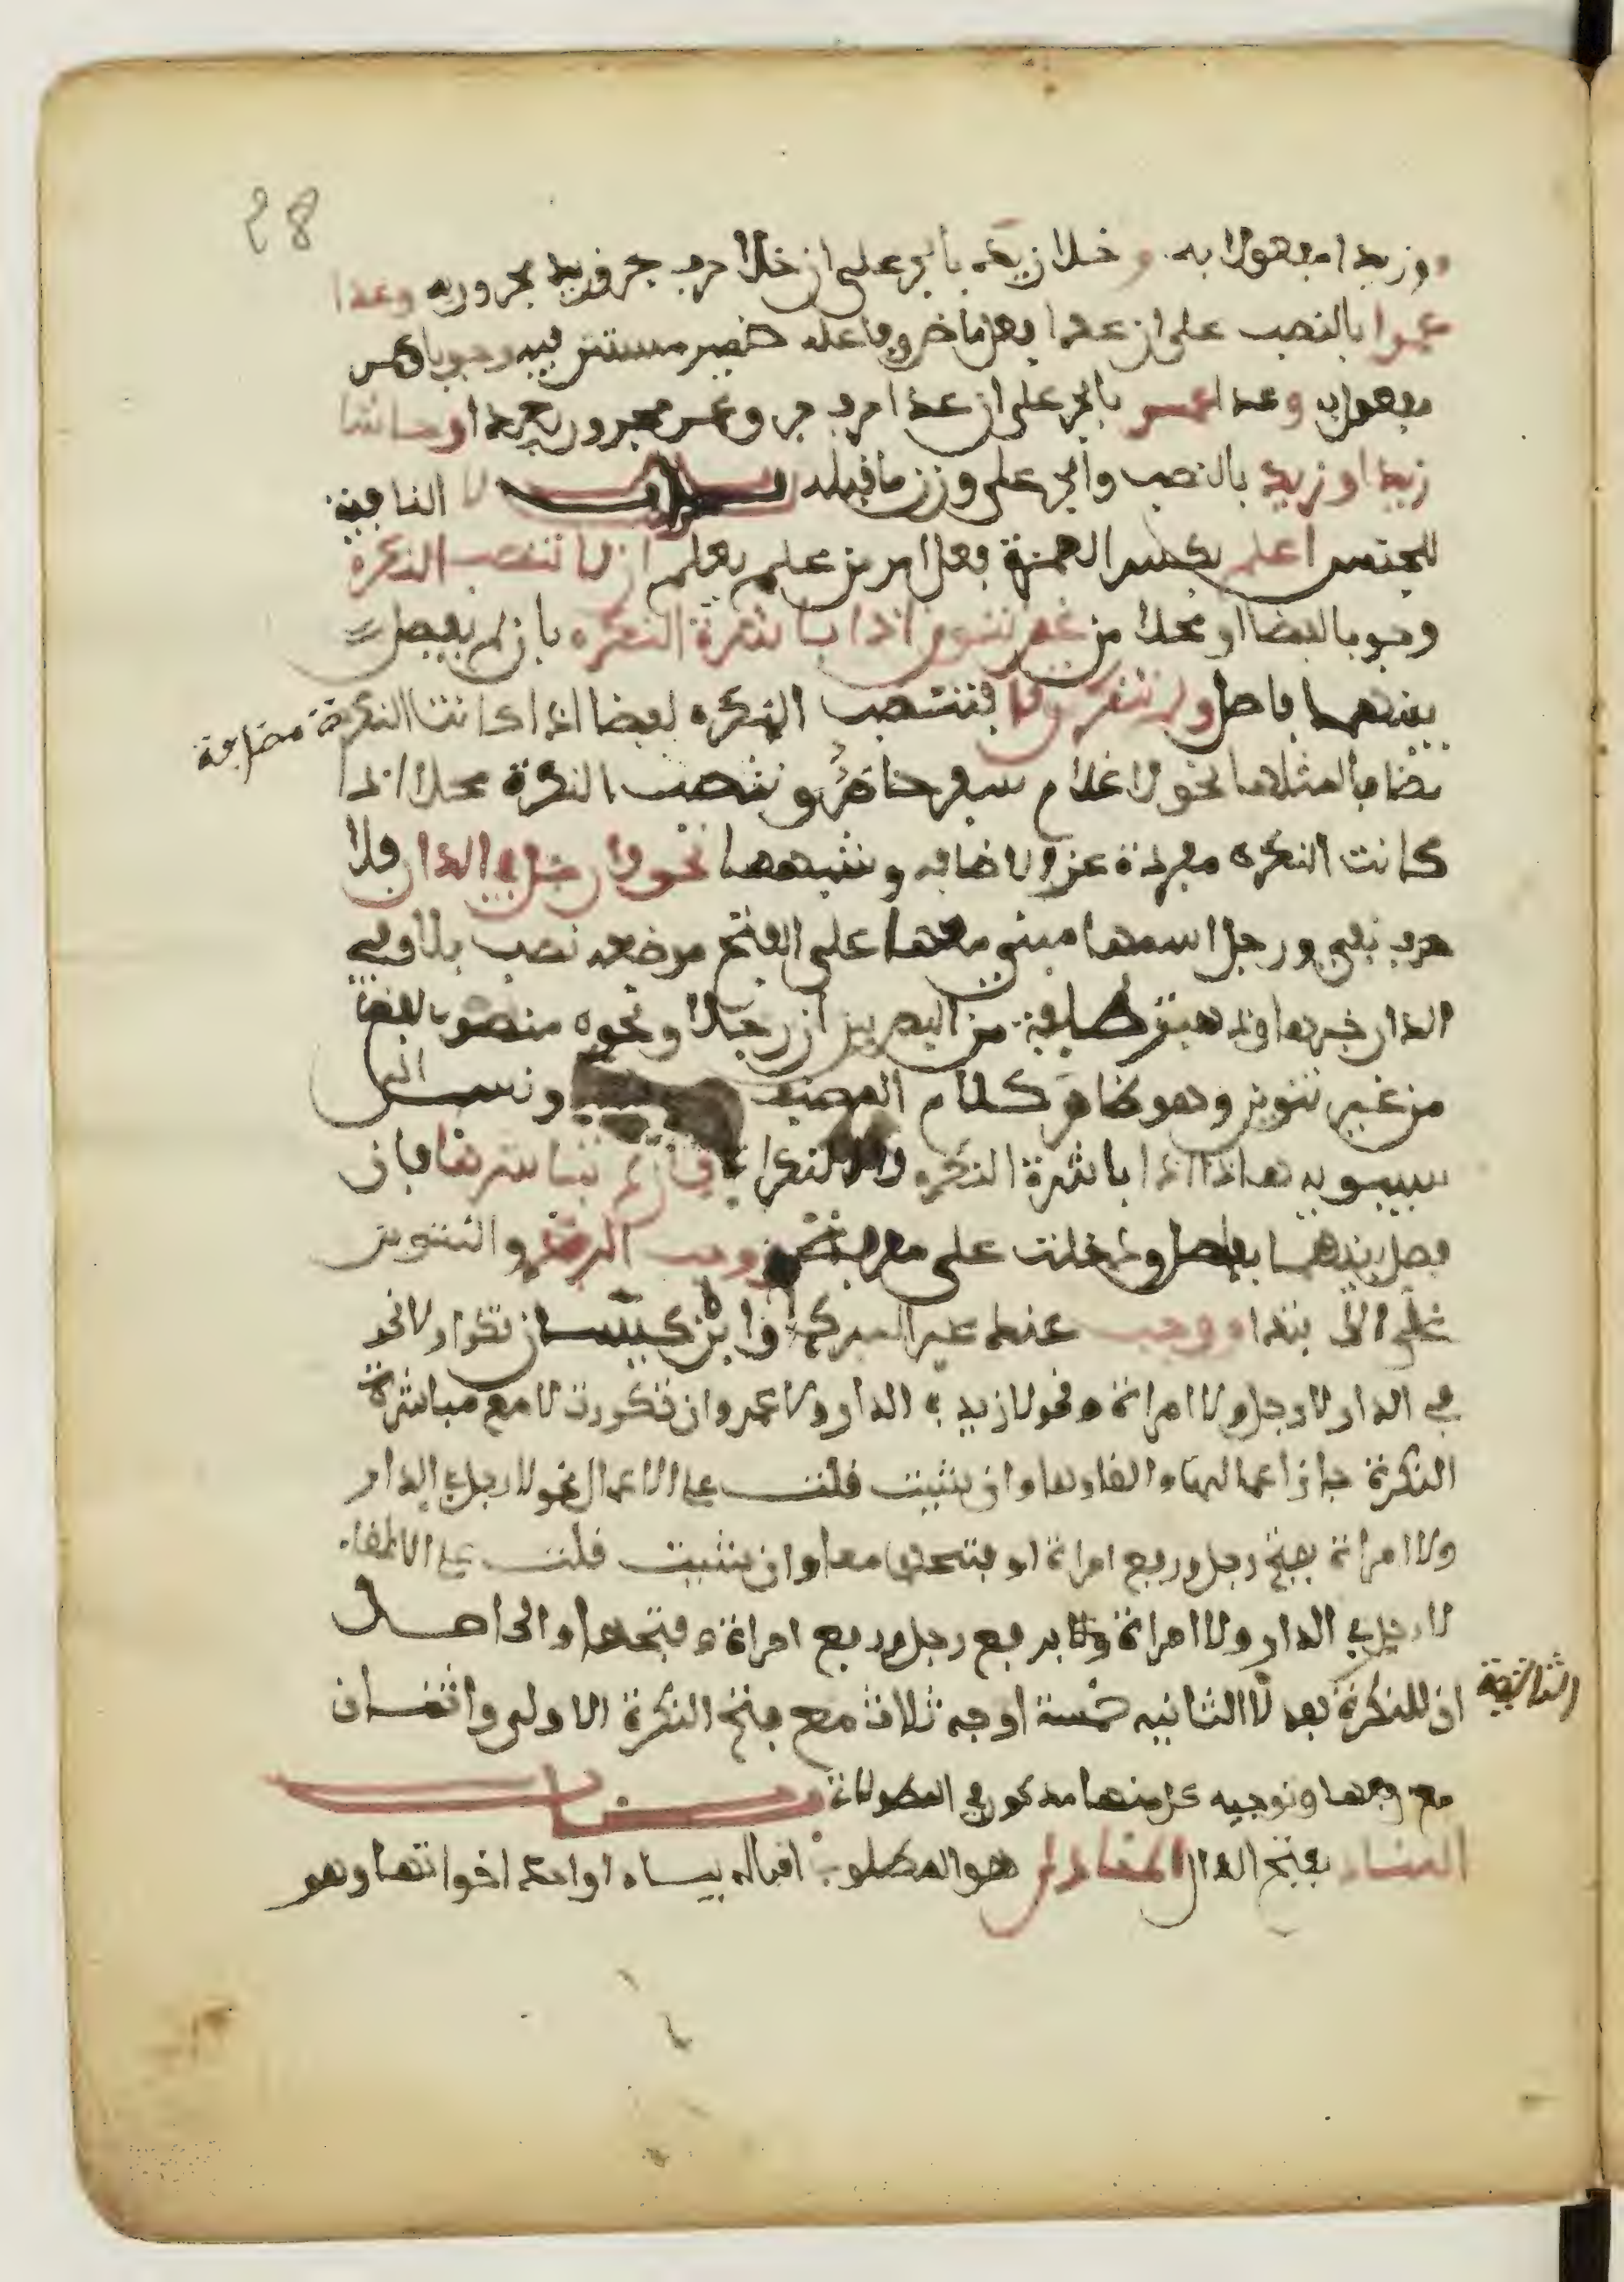 28
وزيدا مفعولا به وخلا زيد بالجر على ان خلا حرف جر وزيد مجرور به وعدا
عمرا بالنصب على ان عدا فعل ماض وفاعله ضمير مستتر فيه وجوبا وعمرا
مفعول به وعدا عمر بالجر على ان عدا حرف جر وعمر مجرور بعدا وحاشا
زيدا وزيد بالنصب والجر على وزن ما قبله باب لا النافية
للجنس اعلم بكسر الهمزة فعل امر من علم يعلم ان لا تنصب النكرة
وجوبا لفظا او محلا من غير تنوين اذا باشرة النكره بان لم يفصل
بينهما فاصل ولم تتكرر لا فتنصب النكره لفظا اذا كانت النكرة مضافة
مضافا لمثلها نحو لا غلام سفر حاضر وتنصب النكرة محلا اذا
كانت النكره مفردة عن الاضافه وشبهها نحو لا رجل في الدار فلا
حرف نفي ورجل اسمها مبني معها على الفتح موضعه نصب بلا وفي
الدار خبرها وذهبت طايفة من البصريين ان رجلا ونحوه منصوب لفظا
من غير تنوين وهو ظاهر كلام المصنف ونسب الى
سيبويه هاذا اذا باشرة النكره لا النكرة فان لم تباشرها فان
فصل بينهما بفاصل ودخلت على معرفة وجب الرفع والتنوين
على الابتداء ووجب عند غير المبرد وابن كيسان تكرار لا نحو
في الدار لا رجل ولا امراة ونحو لا زيد في الدار ولا عمر وان تكررت لا مع مباشرة
النكرة جاز اعمالها والغاوها وان شيت قلت على الاعمال نحو لا رجل في الدار
ولا امراة بفتح رجل ورفع امراة او بفتحهما معا وان شيت قلت على الالغاء
لا رجل في الدار ولا امراة برفع رجل ورفع امراة وفتحها والحاصل
ان للنكرة بعد لا الثانيه خمسة اوجه ثلاث مع فتح النكرة الاولى واثنان
الثانية
مع رفعها وتوجيه كل منها مذكور في المطولات باب
المناد بفتح الدال المنادى هو المطلوب اقباله بياء او احد اخواتها وهو